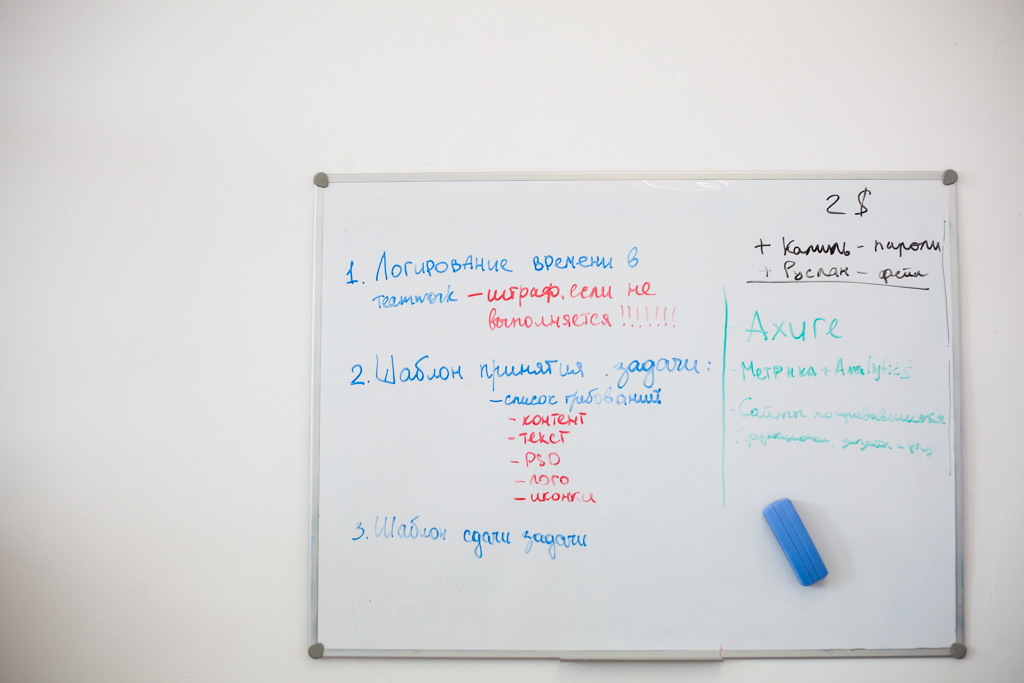 1. Логирование времени в
teamwork – штраф, если не
выполняется !!!!!!!
2. Шаблон принятия задачи:
– список требований
– контент
– текст
– PSD
– лого
– иконки
3. Шаблон сдачи задачи
2 $
+ Камиль – пароли
+ Руслан –
- Axure
- Метрика + Analytics
- Сайты понравившиеся